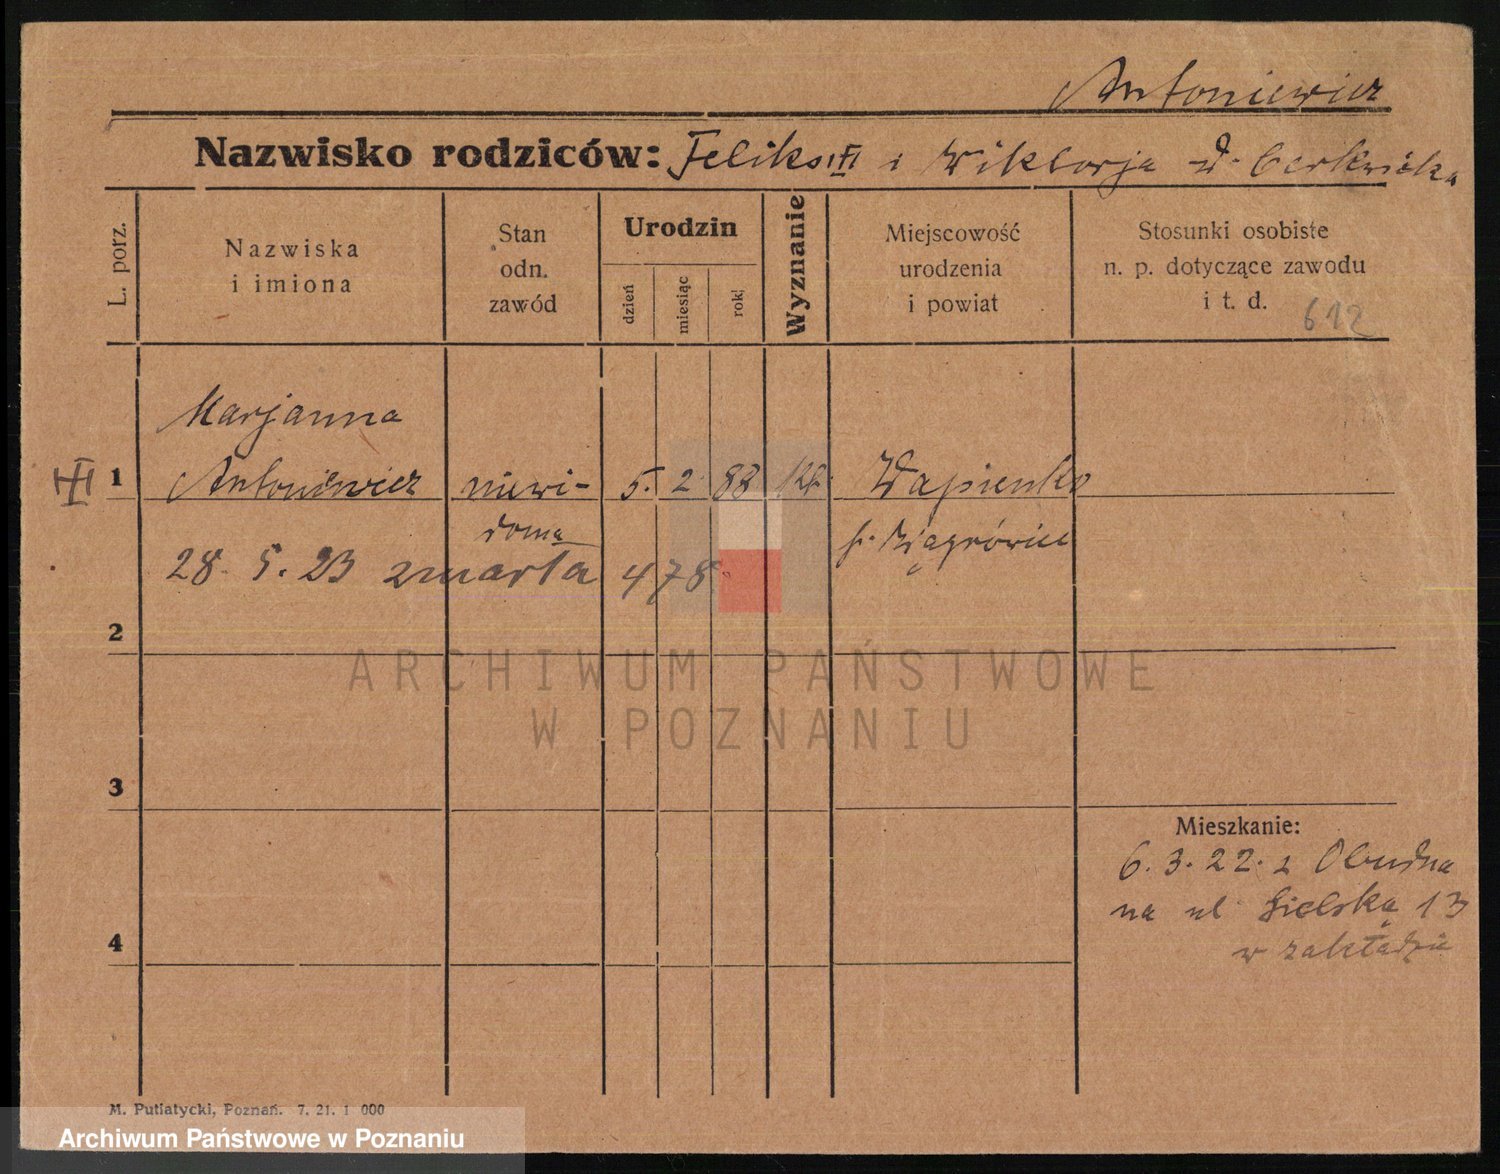 Antoniewicz
Nazwisko rodziców: Feliks i Wiktorja d. Cerkwicka
L. porz.
Nazwiska
i imiona
Stan
odn.
zawód
Urodzin
dzień
miesiąc
rok
Wyznanie
Miejscowość
urodzenia
i powiat
Stosunki osobiste
n. p. dotyczące zawodu
i t. d.
612
Marjanna
1 Antoniewicz niewi- 5. 2. 88 kt. Wapienko
doma p. Wągrówiec
28. 5. 23 zmarła 478
2
3
Mieszkanie:
6. 3. 22. z Obudna
na ul Sielską 13
w zakładzie
4
M. Putiatycki, Poznań. 7. 21. 1 000
ARCHIWUM PAŃSTWOWE
W POZNANIU
Archiwum Państwowe w Poznaniu